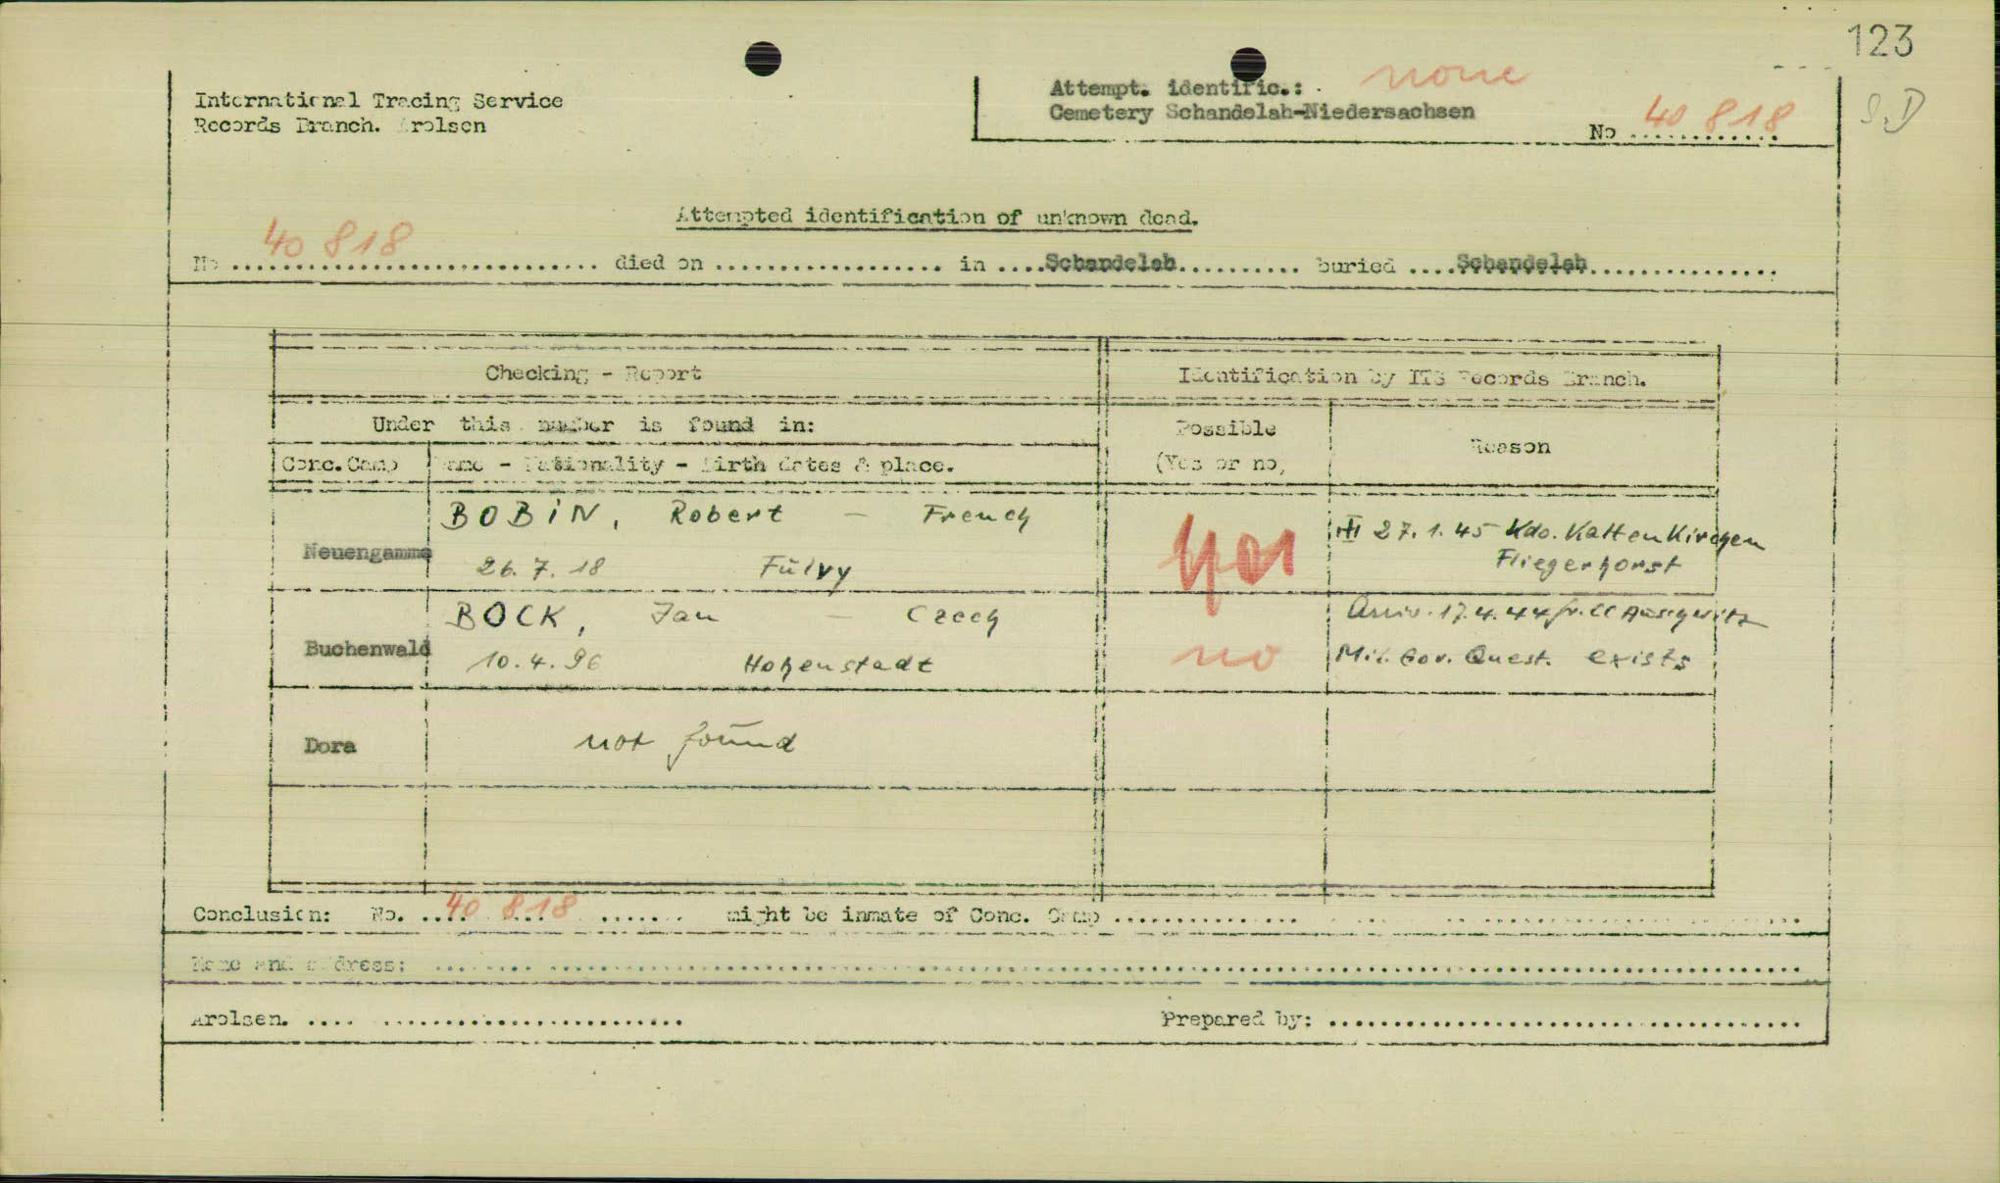 123
International Tracing Service
Records Branch. Arolsen
Attempt. identific.: none
Cemetery Schandelah-Niedersachsen
No ............ 40 818
S.D
Attempted identification of unknown dead.
No 40 818 died on .................. in ....Schandelah.......... buried ....Schandelah...............
Checking - Report
Identification by ITS Records Branch.
Under this number is found in:
Possible
(Yes or no,
Reason
Conc. Camp
Name - Nationality - Birth dates & place.
Neuengamme
BOBIN, Robert - French
26.7.18 Fulvy
27.1.45 Kdo. Kaltenkirchen
Fliegerhorst
Buchenwald
BOCK, Jan - Czech
10.4.96 Hohenstadt
no
Arriv. 17.4.44 fr. CC Auschwitz
Mil. Gov. Quest. exists
Dora
not found
Conclusion: No. 40 818 ....... might be inmate of Conc. Camp ...............
Name and address: ...............
Arolsen. .... ........................
Prepared by: .....................................